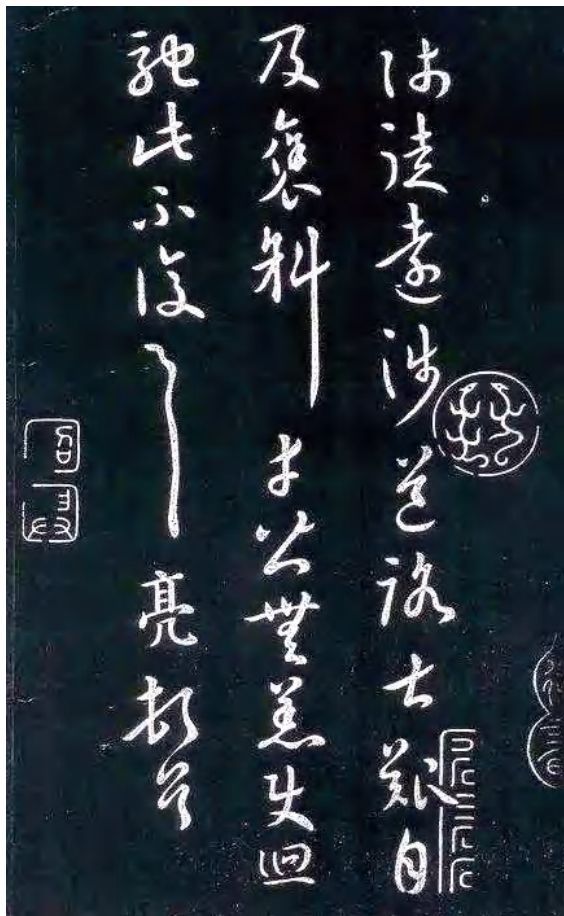 師徒遠涉道路甚艱自
及褒斜幸皆無恙使迴
馳此不復云云亮頓首